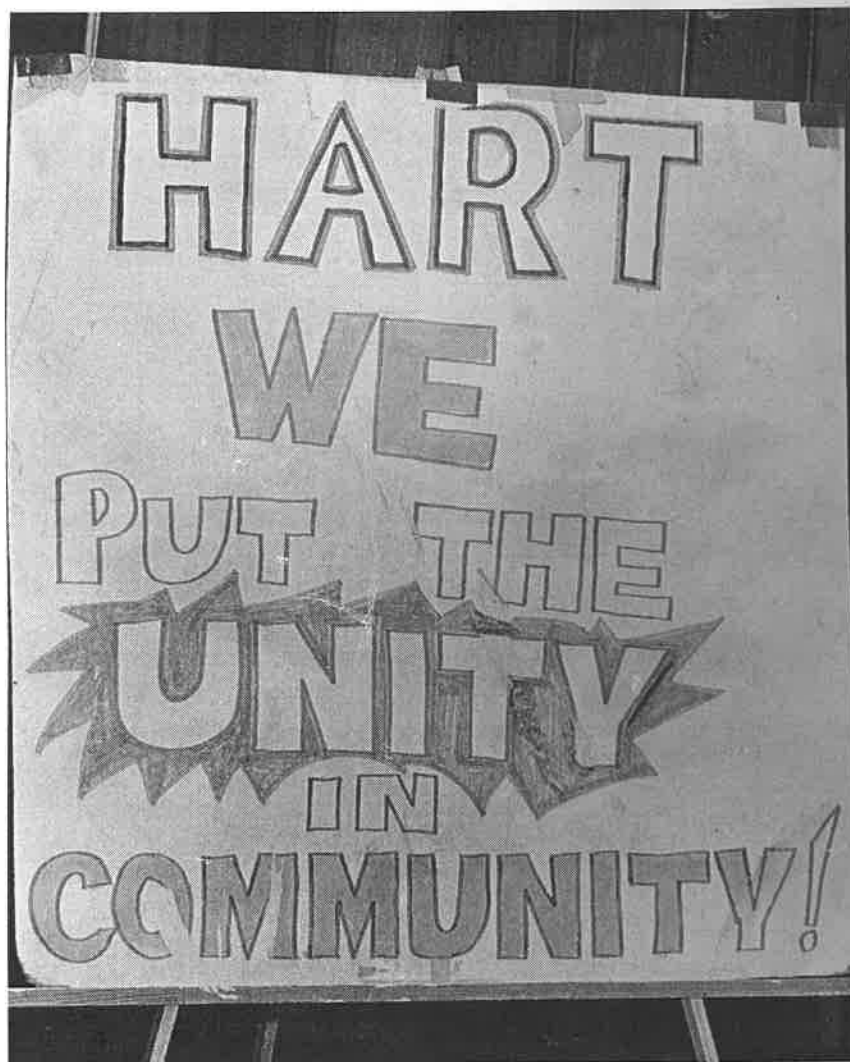 HART
WE
PUT THE
UNITY
IN
COMMUNITY!